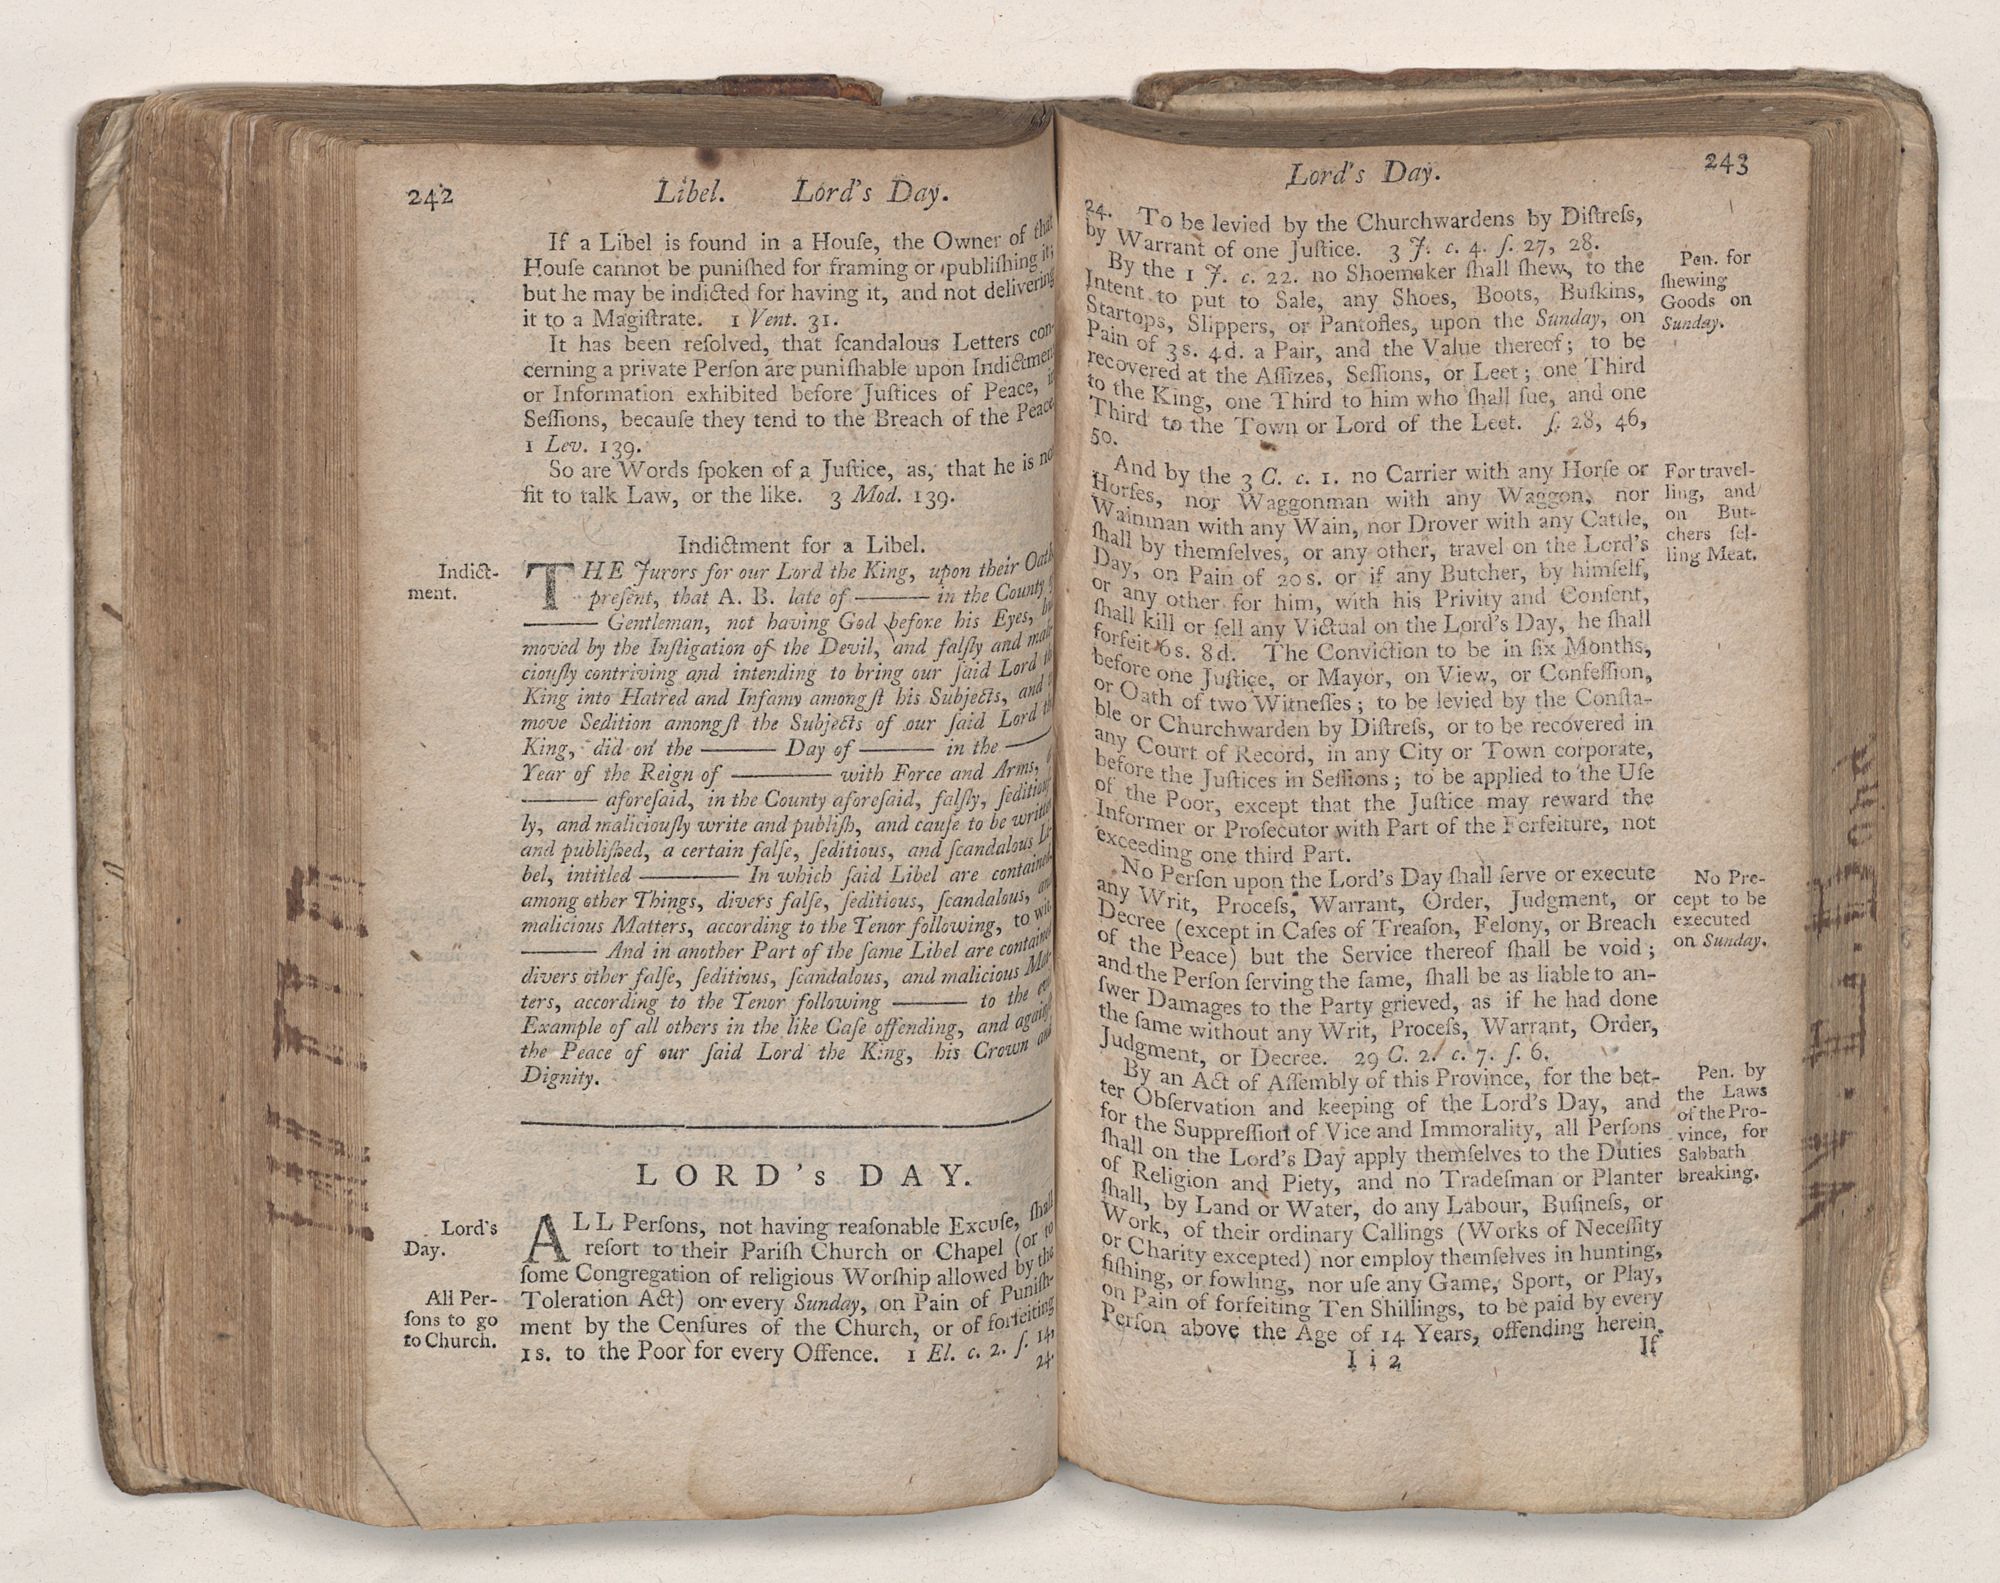 242
Libel. Lord's Day.
If a Libel is found in a Houſe, the Owner of that
Houſe cannot be puniſhed for framing or publiſhing it;
but he may be indicted for having it, and not delivering
it to a Magiſtrate. 1 Vent. 31.
It has been reſolved, that ſcandalous Letters con-
cerning a private Perſon are puniſhable upon Indictment
or Information exhibited before Juſtices of Peace,
Seſſions, becauſe they tend to the Breach of the Peace
1 Lev. 139.
So are Words ſpoken of a Juſtice, as, that he is not
fit to talk Law, or the like. 3 Mod. 139.
Indictment for a Libel.
Indict-
ment.
THE Jurors for our Lord the King, upon their Oath
preſent, that A. B. late of ——— in the County
——— Gentleman, not having God before his Eyes,
moved by the Inſtigation of the Devil, and falſly and mali-
ciouſly contriving and intending to bring our ſaid Lord
King into Hatred and Infamy amongſt his Subjects, and
move Sedition amongſt the Subjects of our ſaid Lord
King, did on the ——— Day of ——— in the ———
Year of the Reign of ——— with Force and Arms,
——— aforeſaid, in the County aforeſaid, falſly, ſeditiouſ-
ly, and maliciouſly write and publiſh, and cauſe to be written
and publiſhed, a certain falſe, ſeditious, and ſcandalous Li-
bel, intitled ——— In which ſaid Libel are contained
among other Things, divers falſe, ſeditious, ſcandalous, and
malicious Matters, according to the Tenor following, to wit
——— And in another Part of the ſame Libel are contained
divers other falſe, ſeditious, ſcandalous, and malicious Mat-
ters, according to the Tenor following ——— to the evil
Example of all others in the like Caſe offending, and againſt
the Peace of our ſaid Lord the King, his Crown and
Dignity.
LORD's DAY.
Lord's
Day.
All Per-
ſons to go
to Church.
ALL Perſons, not having reaſonable Excuſe, ſhall
reſort to their Pariſh Church or Chapel (or to
ſome Congregation of religious Worſhip allowed by the
Toleration Act) on every Sunday, on Pain of Puniſh-
ment by the Cenſures of the Church, or of forfeiting
1s. to the Poor for every Offence. 1 El. c. 2. ſ. 14,
24.
Lord's Day.
243
24. To be levied by the Churchwardens by Diſtreſs,
by Warrant of one Juſtice. 3 J. c. 4. ſ. 27, 28.
By the 1 J. c. 22. no Shoemaker ſhall ſhew, to the
Intent to put to Sale, any Shoes, Boots, Buſkins,
Startops, Slippers, or Pantofles, upon the Sunday, on
Pain of 3s. 4d. a Pair, and the Value thereof; to be
recovered at the Aſſizes, Seſſions, or Leet; one Third
to the King, one Third to him who ſhall ſue, and one
Third to the Town or Lord of the Leet. ſ. 28, 46,
50.
Pen. for
ſhewing
Goods on
Sunday.
And by the 3 C. c. 1. no Carrier with any Horſe or
Horſes, nor Waggonman with any Waggon, nor
Wainman with any Wain, nor Drover with any Cattle,
ſhall by themſelves, or any other, travel on the Lord's
Day, on Pain of 20s. or if any Butcher, by himſelf,
or any other for him, with his Privity and Conſent,
ſhall kill or ſell any Victual on the Lord's Day, he ſhall
forfeit 6s. 8d. The Conviction to be in ſix Months,
before one Juſtice, or Mayor, on View, or Confeſſion,
or Oath of two Witneſſes; to be levied by the Conſta-
ble or Churchwarden by Diſtreſs, or to be recovered in
any Court of Record, in any City or Town corporate,
before the Juſtices in Seſſions; to be applied to the Uſe
of the Poor, except that the Juſtice may reward the
Informer or Proſecutor with Part of the Forfeiture, not
exceeding one third Part.
For travel-
ling, and
on But-
chers ſel-
ling Meat.
No Perſon upon the Lord's Day ſhall ſerve or execute
any Writ, Proceſs, Warrant, Order, Judgment, or
Decree (except in Caſes of Treaſon, Felony, or Breach
of the Peace) but the Service thereof ſhall be void;
and the Perſon ſerving the ſame, ſhall be as liable to an-
ſwer Damages to the Party grieved, as if he had done
the ſame without any Writ, Proceſs, Warrant, Order,
Judgment, or Decree. 29 C. 2. c. 7. ſ. 6.
No Pre-
cept to be
executed
on Sunday.
By an Act of Aſſembly of this Province, for the bet-
ter Obſervation and keeping of the Lord's Day, and
for the Suppreſſion of Vice and Immorality, all Perſons
ſhall on the Lord's Day apply themſelves to the Duties
of Religion and Piety, and no Tradeſman or Planter
ſhall, by Land or Water, do any Labour, Buſineſs, or
Work, of their ordinary Callings (Works of Neceſſity
or Charity excepted) nor employ themſelves in hunting,
fiſhing, or fowling, nor uſe any Game, Sport, or Play,
on Pain of forfeiting Ten Shillings, to be paid by every
Perſon above the Age of 14 Years, offending herein.
Pen. by
the Laws
of the Pro-
vince, for
Sabbath
breaking.
I i 2
If